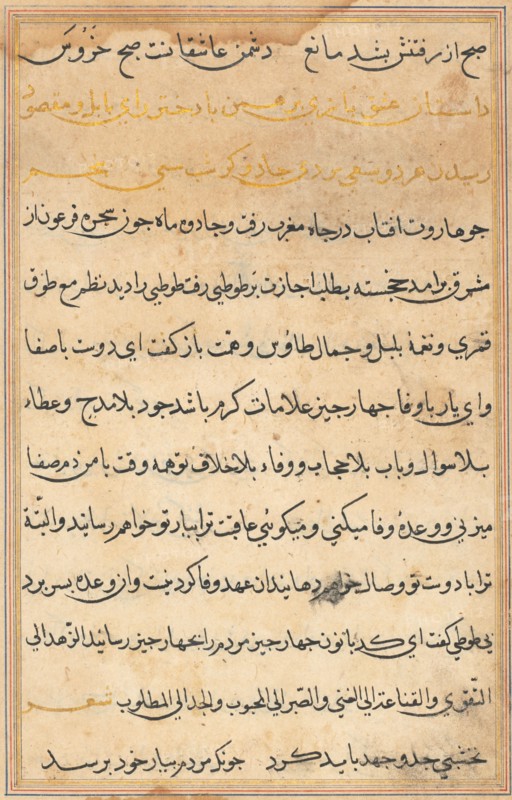 صبح از رفتنش بشد مانع دشمن عاشقانت صبح خروس
داستان عشق بازی برهمن با دختر رای بابل و مقصود
رسیدن هر دو بسعی مردی جادوگر شب سی پنجم
جو هاروت افتاب در جاه مغرب رفت و جادوه ماه جون سحره فرعون از
مشرق برامد خجسته بطلب اجازت بر طوطی رفت طوطی را دید نظم مع طوق
قمری و نغمهٔ بلبل و جمال طاؤس و همت باز کفت ای دوست با صفا
و ای یار با وفا جهار جیز علامات کرم باشد جود بلا مدح و عطاء
بلا سوال و باب بلا حجاب و وفاء بلا خلاف تو همه وقت با من دم صفا
میزنی و وعدهٔ وفا میکنی و میکوئی عاقبت ترا بیار تو خواهم رسانید والبتة
ترا با دوت تو وصال خواهم دهانیدان عهد وفا کرد نیت وان وعده بسر برد
نی طوطی کفت ای کدبانون جهار جیز مردم را بجهار جیز رسانید الزهد الی
التقوی والقناعة الی الغنی والصبر الی المحبوب والجد الی المطلوب شعر
نخشبی جد و جهد باید کرد جونکه مردم بیار خود برسد